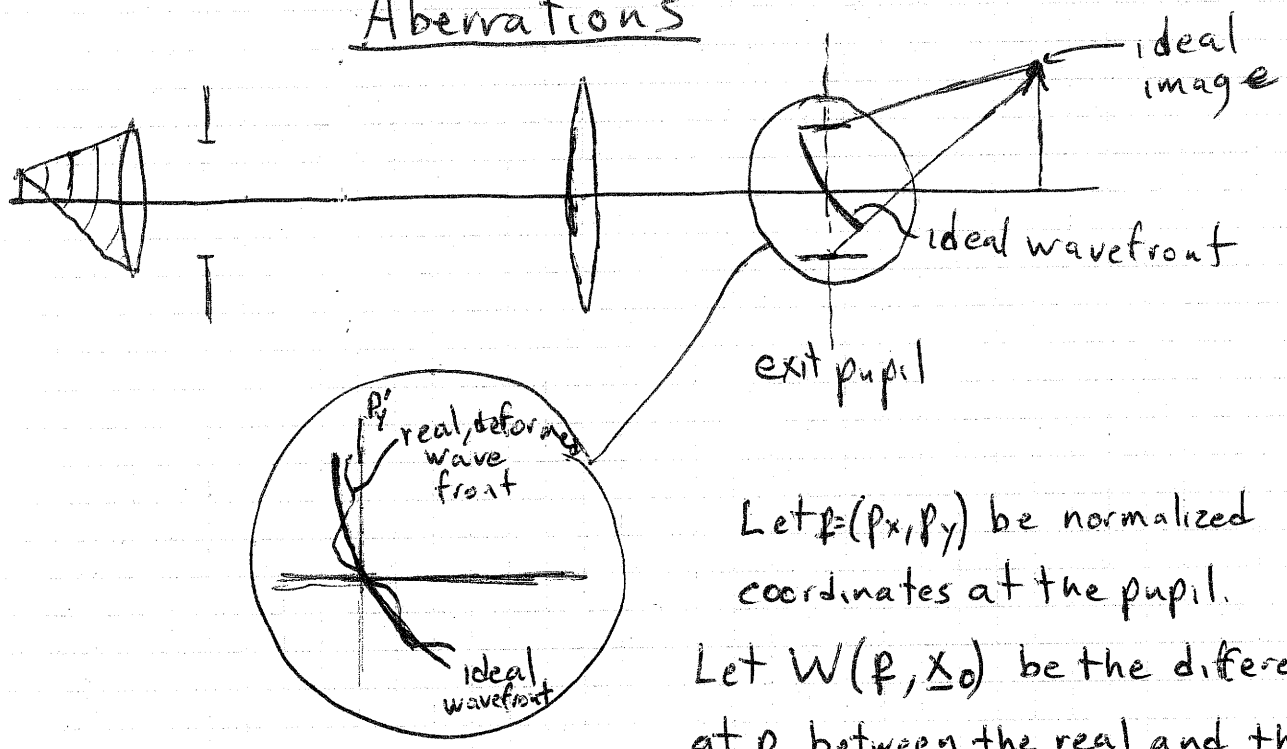 Aberrations
ideal
image
ideal wavefront
exit pupil
Py'
real, deformed
wave
front
ideal
wavefront
Let p=(px,py) be normalized
coordinates at the pupil.
Let W(p,x₀) be the differe
at p between the real and th